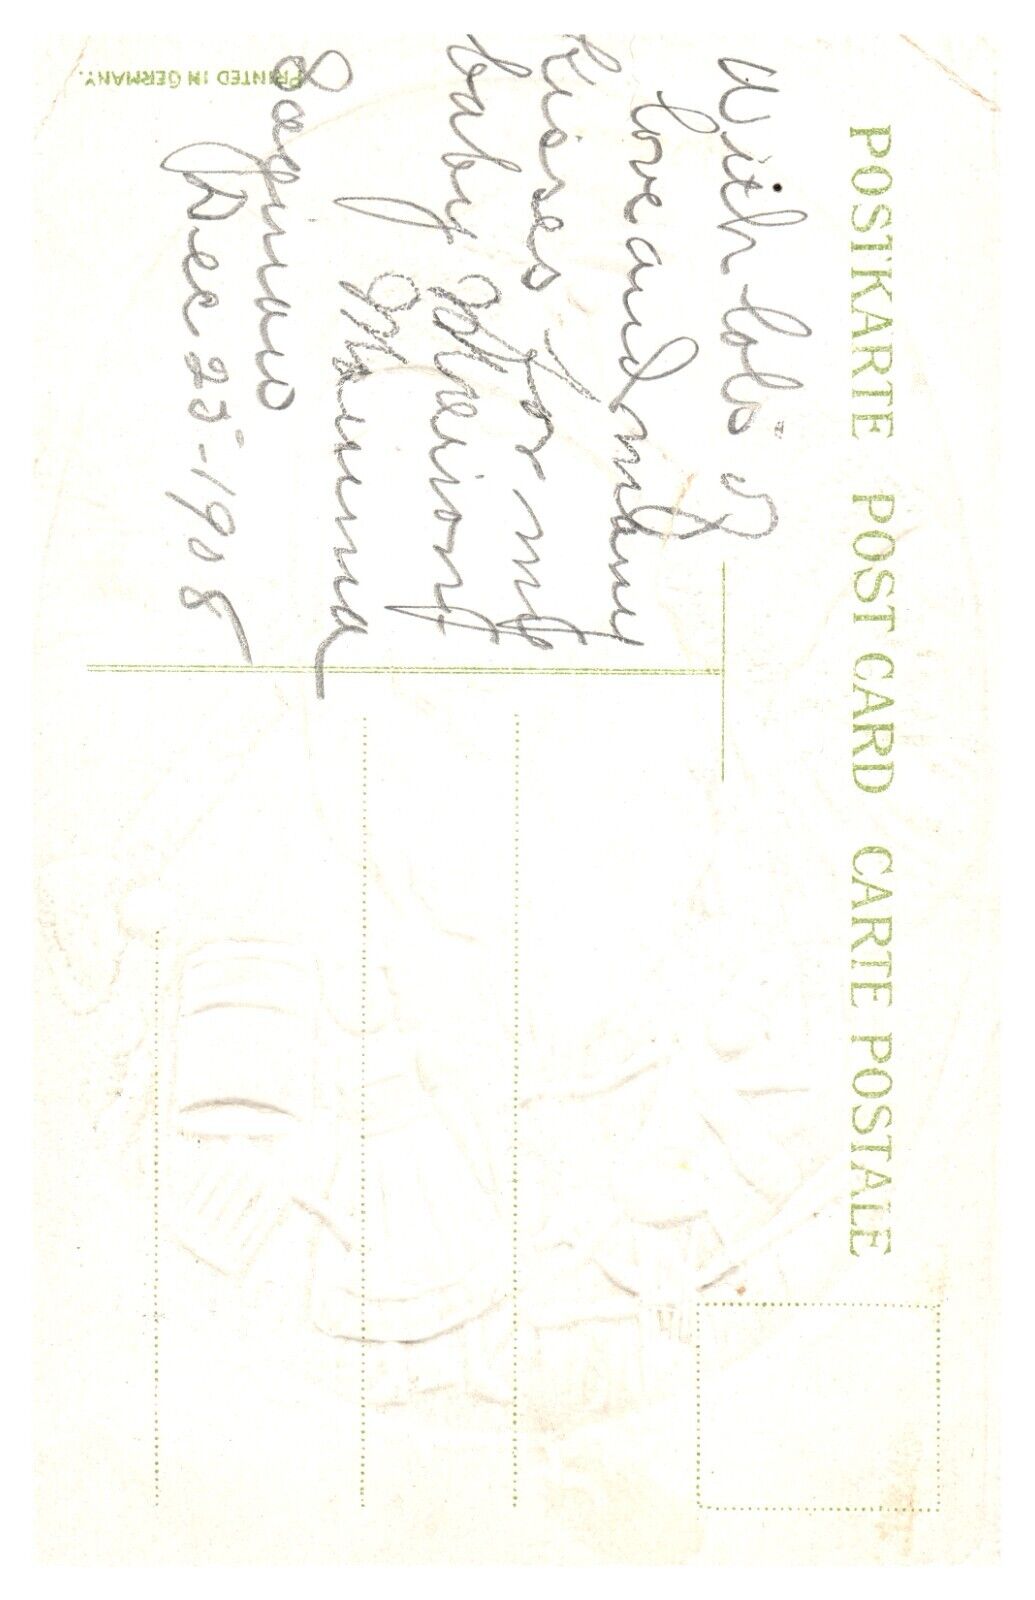 POSTKARTE POST CARD CARTE POSTALE
With Lolo's
love and many
kisses for my
baby
Mamma
Saginaw
Dec 25-1908
PRINTED IN GERMANY.